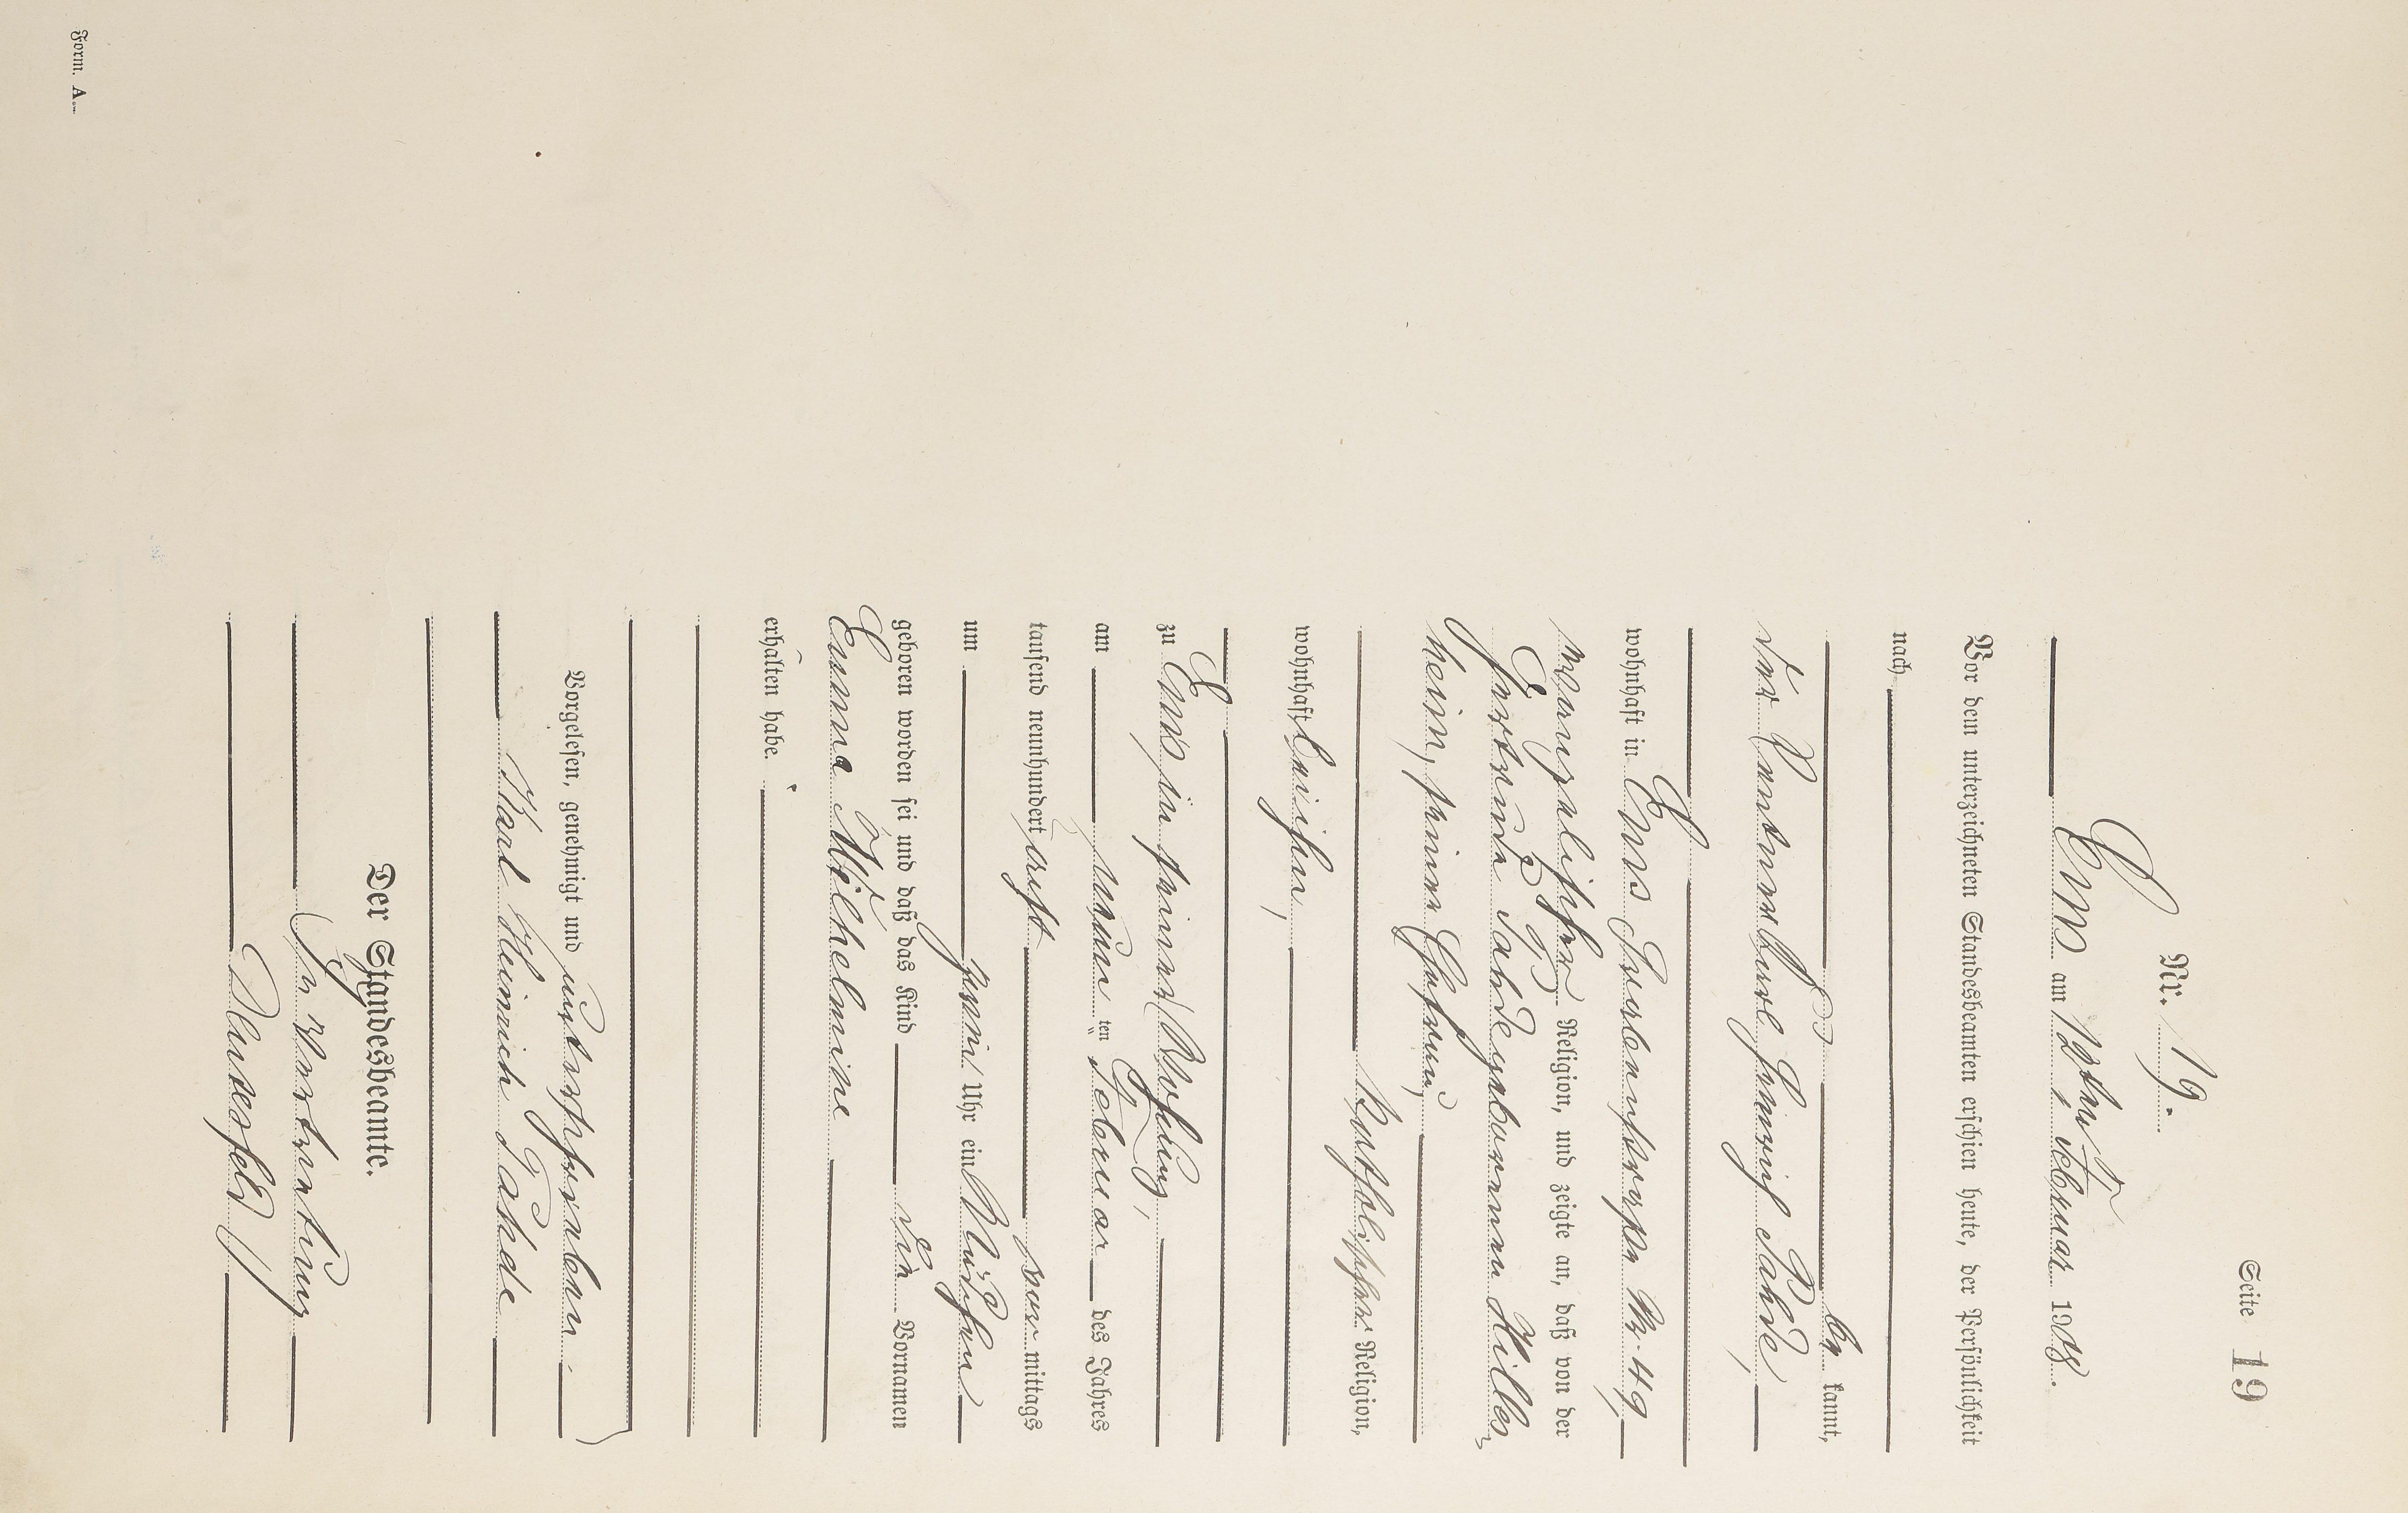 Seite 19
Nr. 19.
Ems am 12ten Februar 1908.
Vor dem unterzeichneten Standesbeamten erschien heute, der Persönlichkeit
nach
be kannt,
der Rentner Karl Heinrich Jahde,
wohnhaft in Ems, Grabenstraße Nr. 49,
evangelischer Religion, und zeigte an, daß von der
Gertrude Jahde geborenen Hilles-
heim, seiner Ehefrau,
katholischer Religion,
wohnhaft bei ihm,
zu Ems in seiner Wohnung,
am neunten Februar des Jahres
tausend neunhundert acht vor mittags
um Uhr ein Mädchen
geboren worden sei und daß das Kind die Vornamen
Emma Wilhelmine
erhalten habe.
Vorgelesen, genehmigt und unterschrieben.
Karl Heinrich Jahde
Der Standesbeamte.
In Vertretung
Form. A.